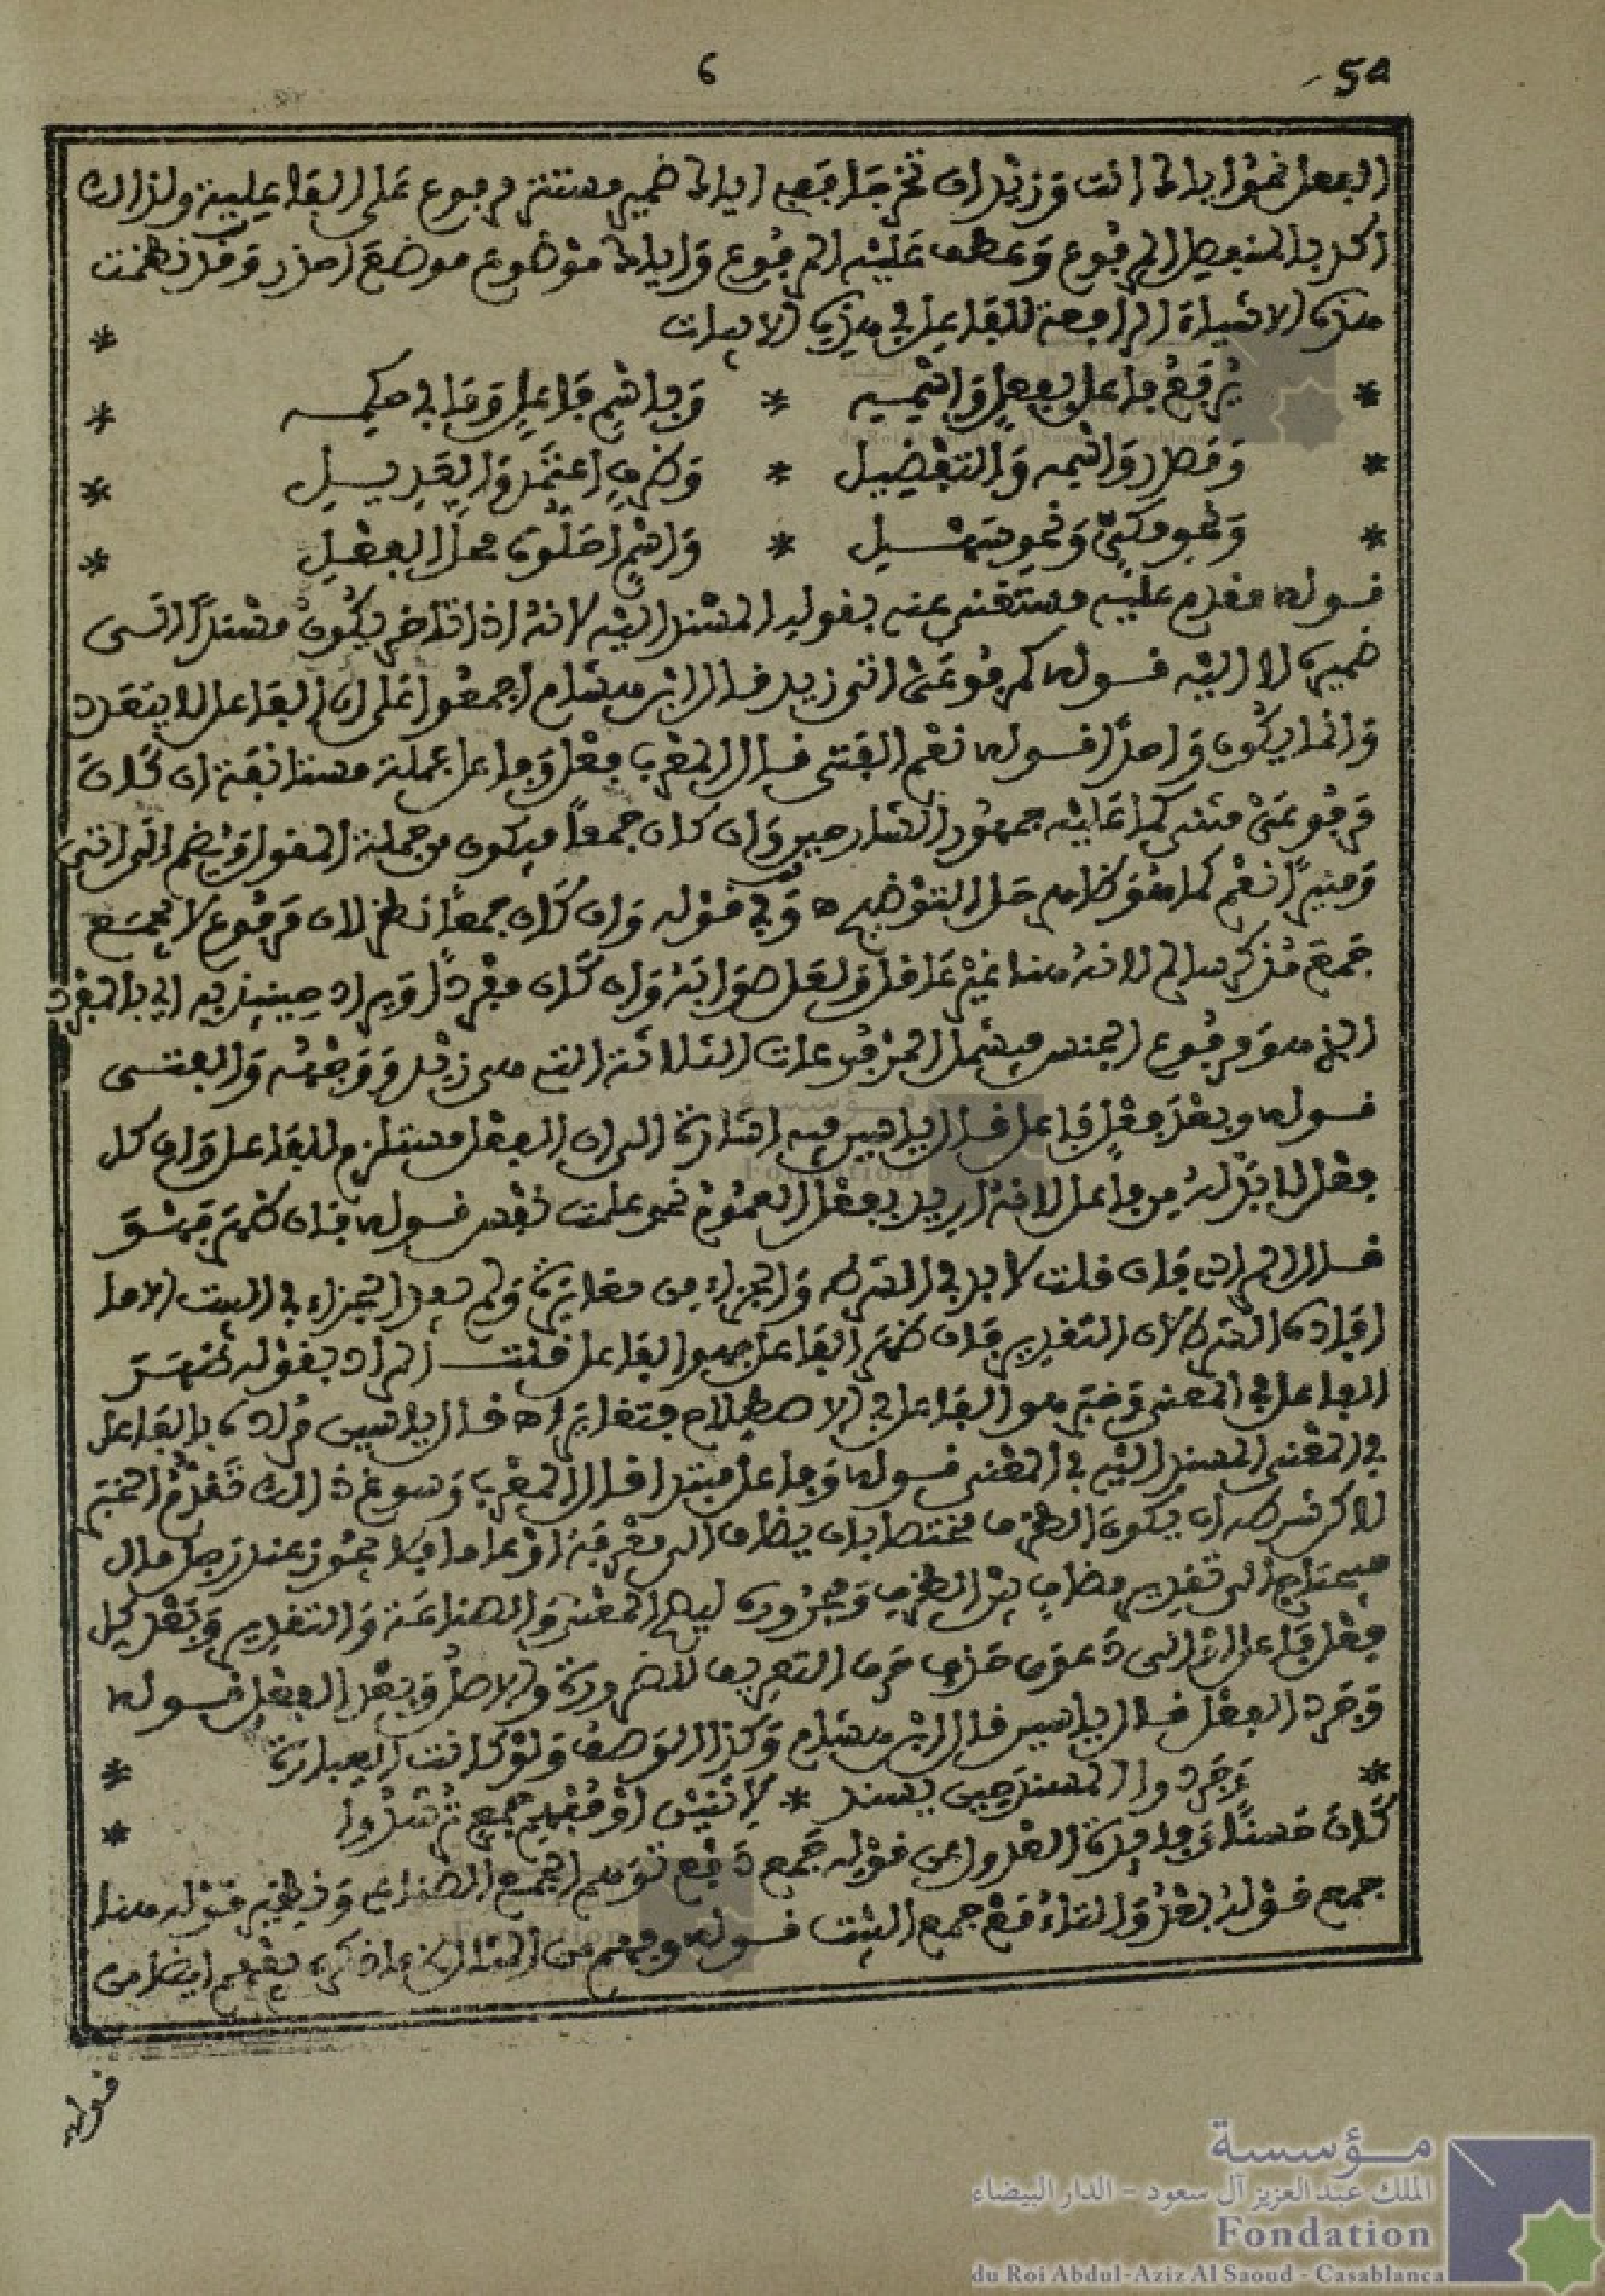 6
58
الفعل نحو اياك انت وزيد ان تخرجا ففي اياك ضمير مستتر مرفوع على الفاعلية ولذالك
اكد بالمنفصل المرفوع وعطف عليه المرفوع واياك موضوع موضع احذر وقد نظمت
هذه الاشياء الرافعة للفاعل في هذه الابيات *
* يُرفَعُ فاعل بفعلٍ واسمه * وباسم فاعلٍ وما في حكمه *
* ومصدر واسمه والتفضيل * وظرفٍ اعتمد والعديل *
* ونحو مكيّ ونحو شمسيل * واسم احلوه محل الفعل *
قوله مقدم عليه مستغنى عنه بقوله المسند اليه لانه اذا تاخر يكون مسندا الى
ضميره لا اليه قوله كمرفوعي اتى زيد قال ابن هشام اجمعوا على ان الفاعل لا يتعدد
وانما يكون واحدًا قوله نعم الفتى قال المعرب فعل وفاعل جملة مستانفة ان كان
مرفوعي مثنى كما عليه جمهور الشارحين وان كان جمعاً فيكون من جملة المقول ويضم الى اتى
ومنيرًا نعم كما هو ظاهر حل التوضيح ه وفي قوله وان كان جمعاً نظر لان مرفوع لا يجمع
جمع مذكر سالم لانه هنا غير عاقل ولعل صوابه وان كان مفردًا ويراد حينئذ به اي بالمفرد
الذي هو مرفوع الجنس فيشمل المرفوعات الثلاثة التي هي زيد ووجهه والفتى
قوله وبعد فعل فاعل قال ياسين فيه اشارة الى ان الفعل مستلزم للفاعل وان كل
فعل لا بد له من فاعل لانه اريد بفعل العموم نحو علمت نفس قوله فان ظهر فهو
قال المرادي فان قلت لا بد في الشرط والجزاء من مغايرة ولم يفد الجزاء في البيت الا ما
افاده الشرط لان التقدير فان ظهر الفاعل فهو الفاعل قلت المراد بقوله ظهر
الفاعل في المعنى وخبر هو الفاعل في الاصطلاح فتغايرا ه قال ياسين مراده بالفاعل
في المعنى المسند اليه في المعنى قوله وفاعل مبتدا قال المعرب وسوغ ذالك تقدم الخبر
لاكن شرطه ان يكون الظرف مختصا بان يضاف الى معرفة او عام فلا يجوز عند رجل مال
فيحتاج الى تقدير مضاف بين الظرف ومجروره ليصح المعنى والصناعة والتقدير وبعد كل
فعل فاعل اذ ادعوى حذف حرف التعريف للضرورة والاصل وبعد الفعل قوله
وجرد الفعل قال ياسين قال ابن هشام وكذا الوصف ولو كانت العبارة
* وجردوا المسند حين يسند * لاثنين او مفهم جمع ثم شدوا *
كان حسنًا وفايدة العدول عن قوله جمع دفع توهم الجمع الصناعي وفي نظير قوله هنا *
جمع قولهُ بعدُ والتاءُ مع جمع البيت قوله ويفهم من المثال الذي ذكره يفهم ايضا من
قوله
مؤسسة
الملك عبد العزيز آل سعود - الدار البيضاء
Fondation
du Roi Abdul-Aziz Al Saoud - Casablanca